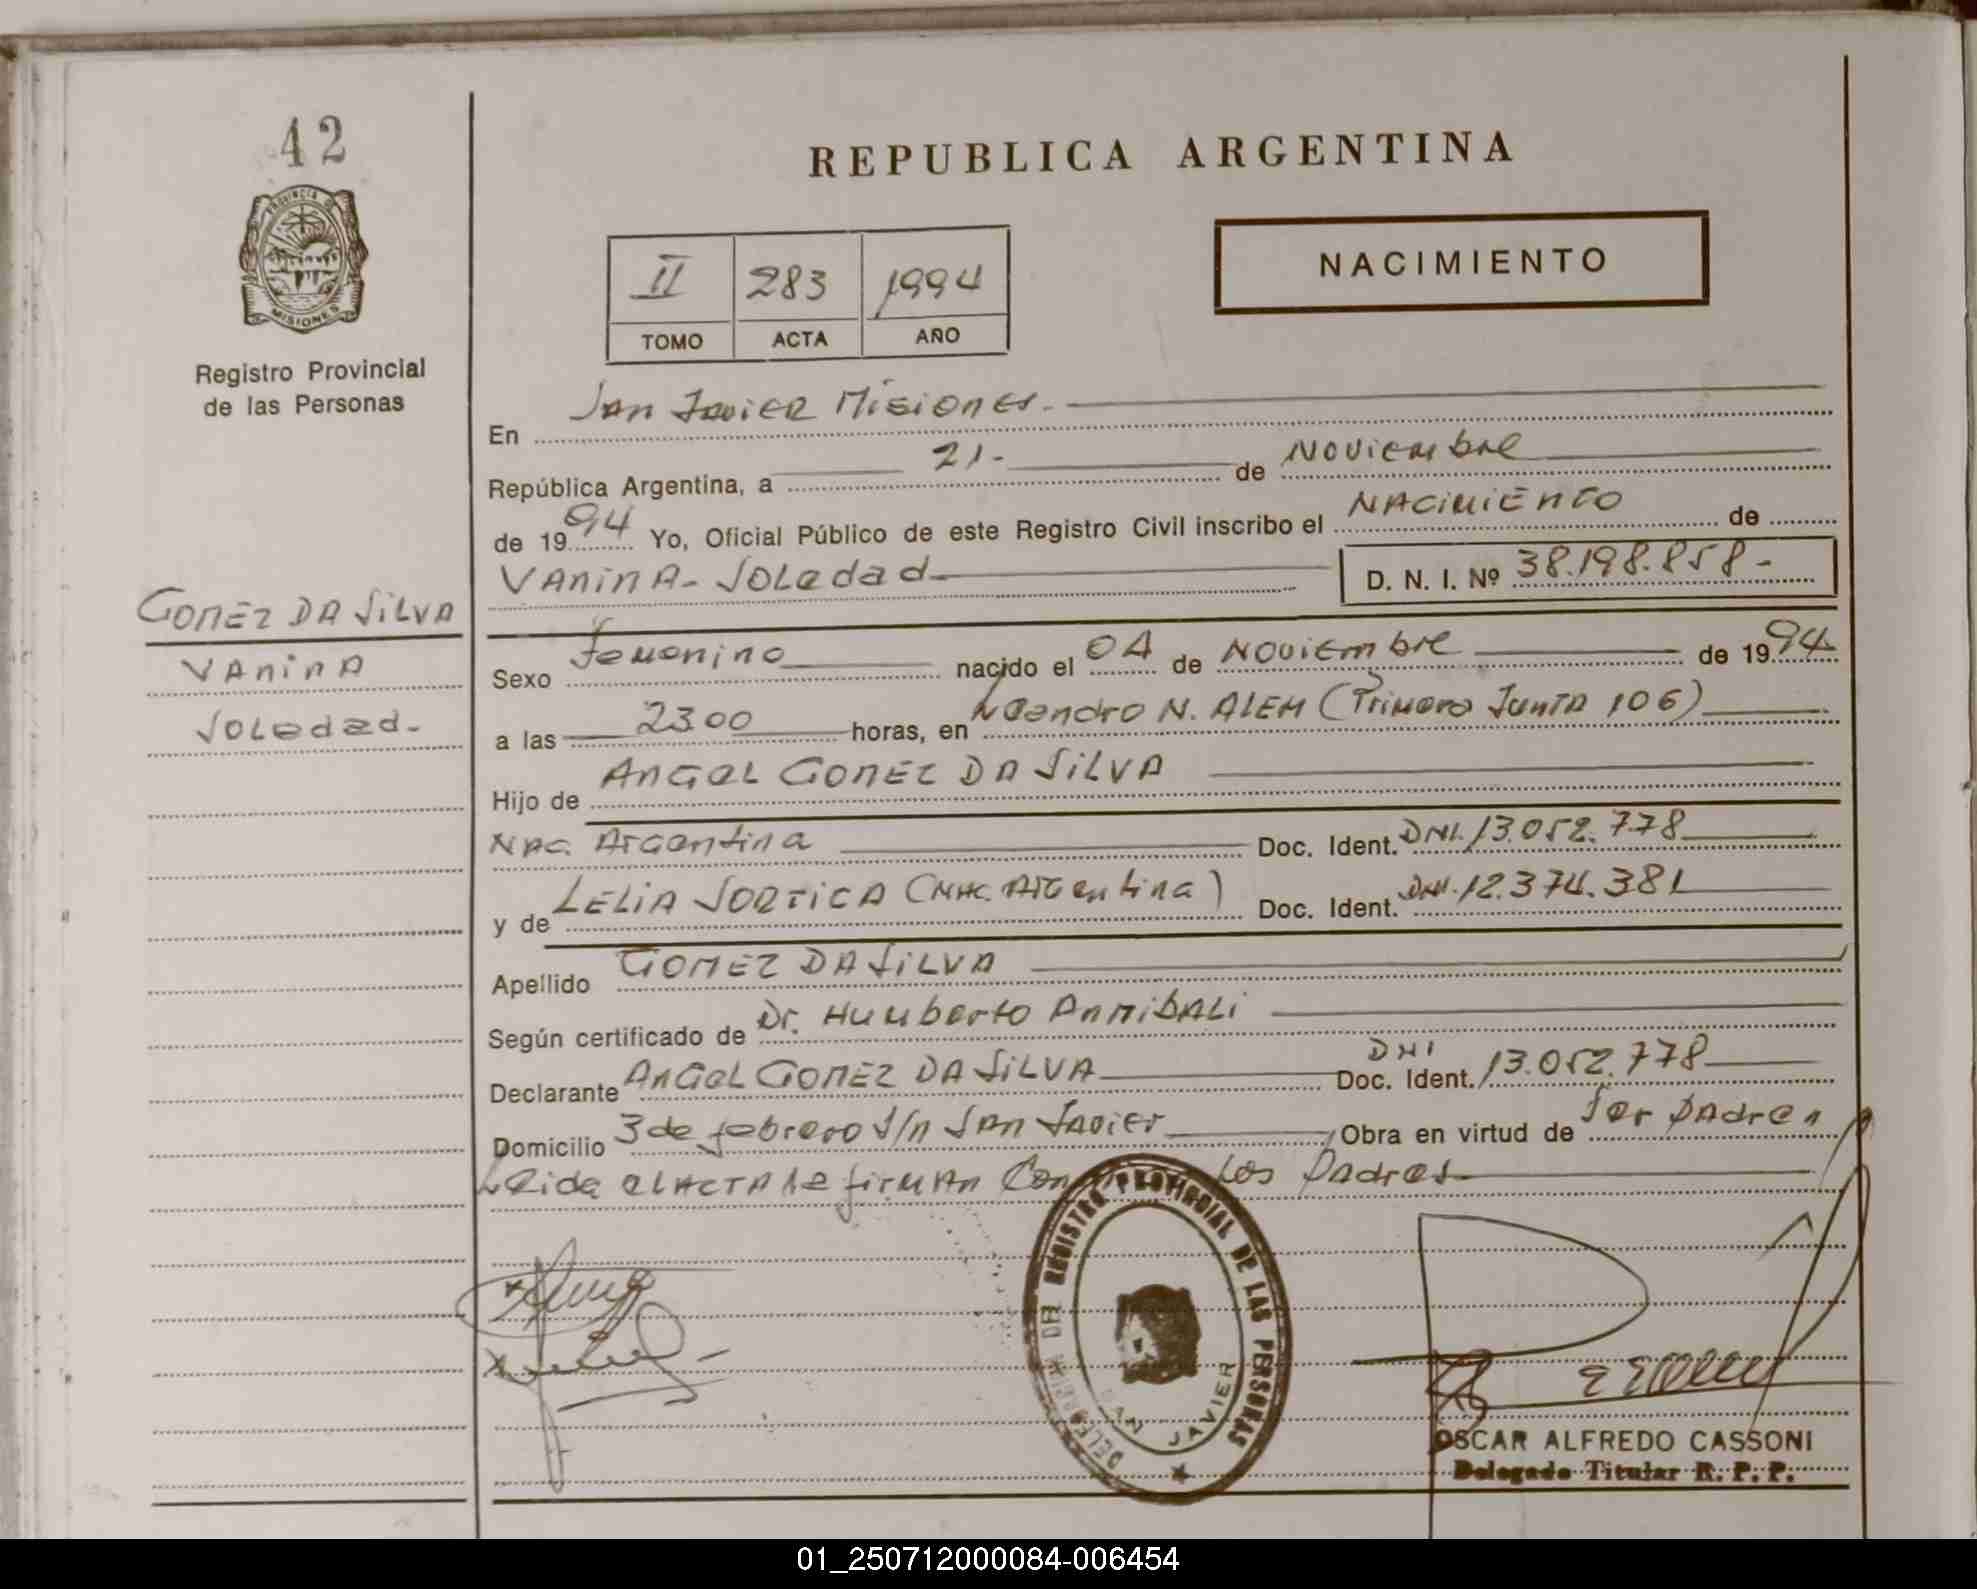 42
PROVINCIA DE
MISIONES
Registro Provincial
de las Personas
GOMEZ DA SILVA
VANINA
SOLEDAD.-
REPUBLICA ARGENTINA
NACIMIENTO
II 283 1994
TOMO ACTA AÑO
En San Javier Misiones.-
República Argentina, a 21.- de Noviembre
de 1994 Yo, Oficial Público de este Registro Civil inscribo el NACIMIENTO de
VANINA-SOLEDAD.- D. N. I. Nº 38.198.858-
Sexo Femenino nacido el 04 de Noviembre de 1994
a las 23 00 horas, en Leandro N. ALEM (Primera Junta 106)
Hijo de ANGEL GOMEZ DA SILVA
Nac. Argentina Doc. Ident. DNI. 13.052.778
y de LELIA SORTICA (Nac. Argentina) Doc. Ident. DNI. 12.374.381
Apellido GOMEZ DA SILVA
Según certificado de Dr. Humberto ANNIBALI
Declarante ANGEL GOMEZ DA SILVA DNI Doc. Ident. 13.052.778
Domicilio 3 de febrero S/n San Javier Obra en virtud de Ser Padre
Leida el ACTA la firman Los Padres
DELEGACION DEL REGISTRO PROVINCIAL DE LAS PERSONAS
SAN JAVIER
OSCAR ALFREDO CASSONI
Delegado Titular R. P. P.
01_250712000084-006454